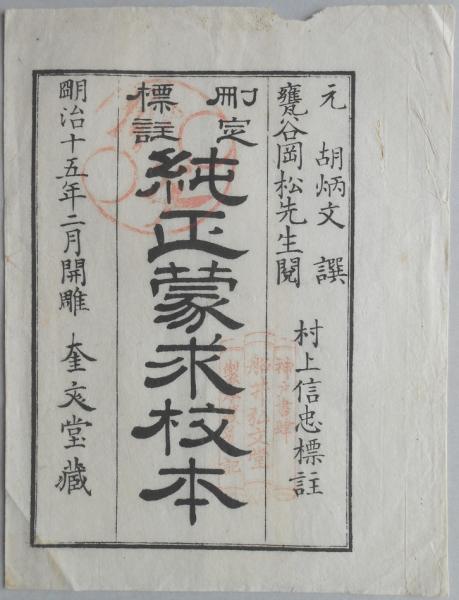 元 胡炳文 譔
甕谷岡松先生閲 村上信忠標註
刪定
標註
純正蒙求校本
明治十五年二月開雕 奎文堂藏
神戸書肆
船井弘文堂